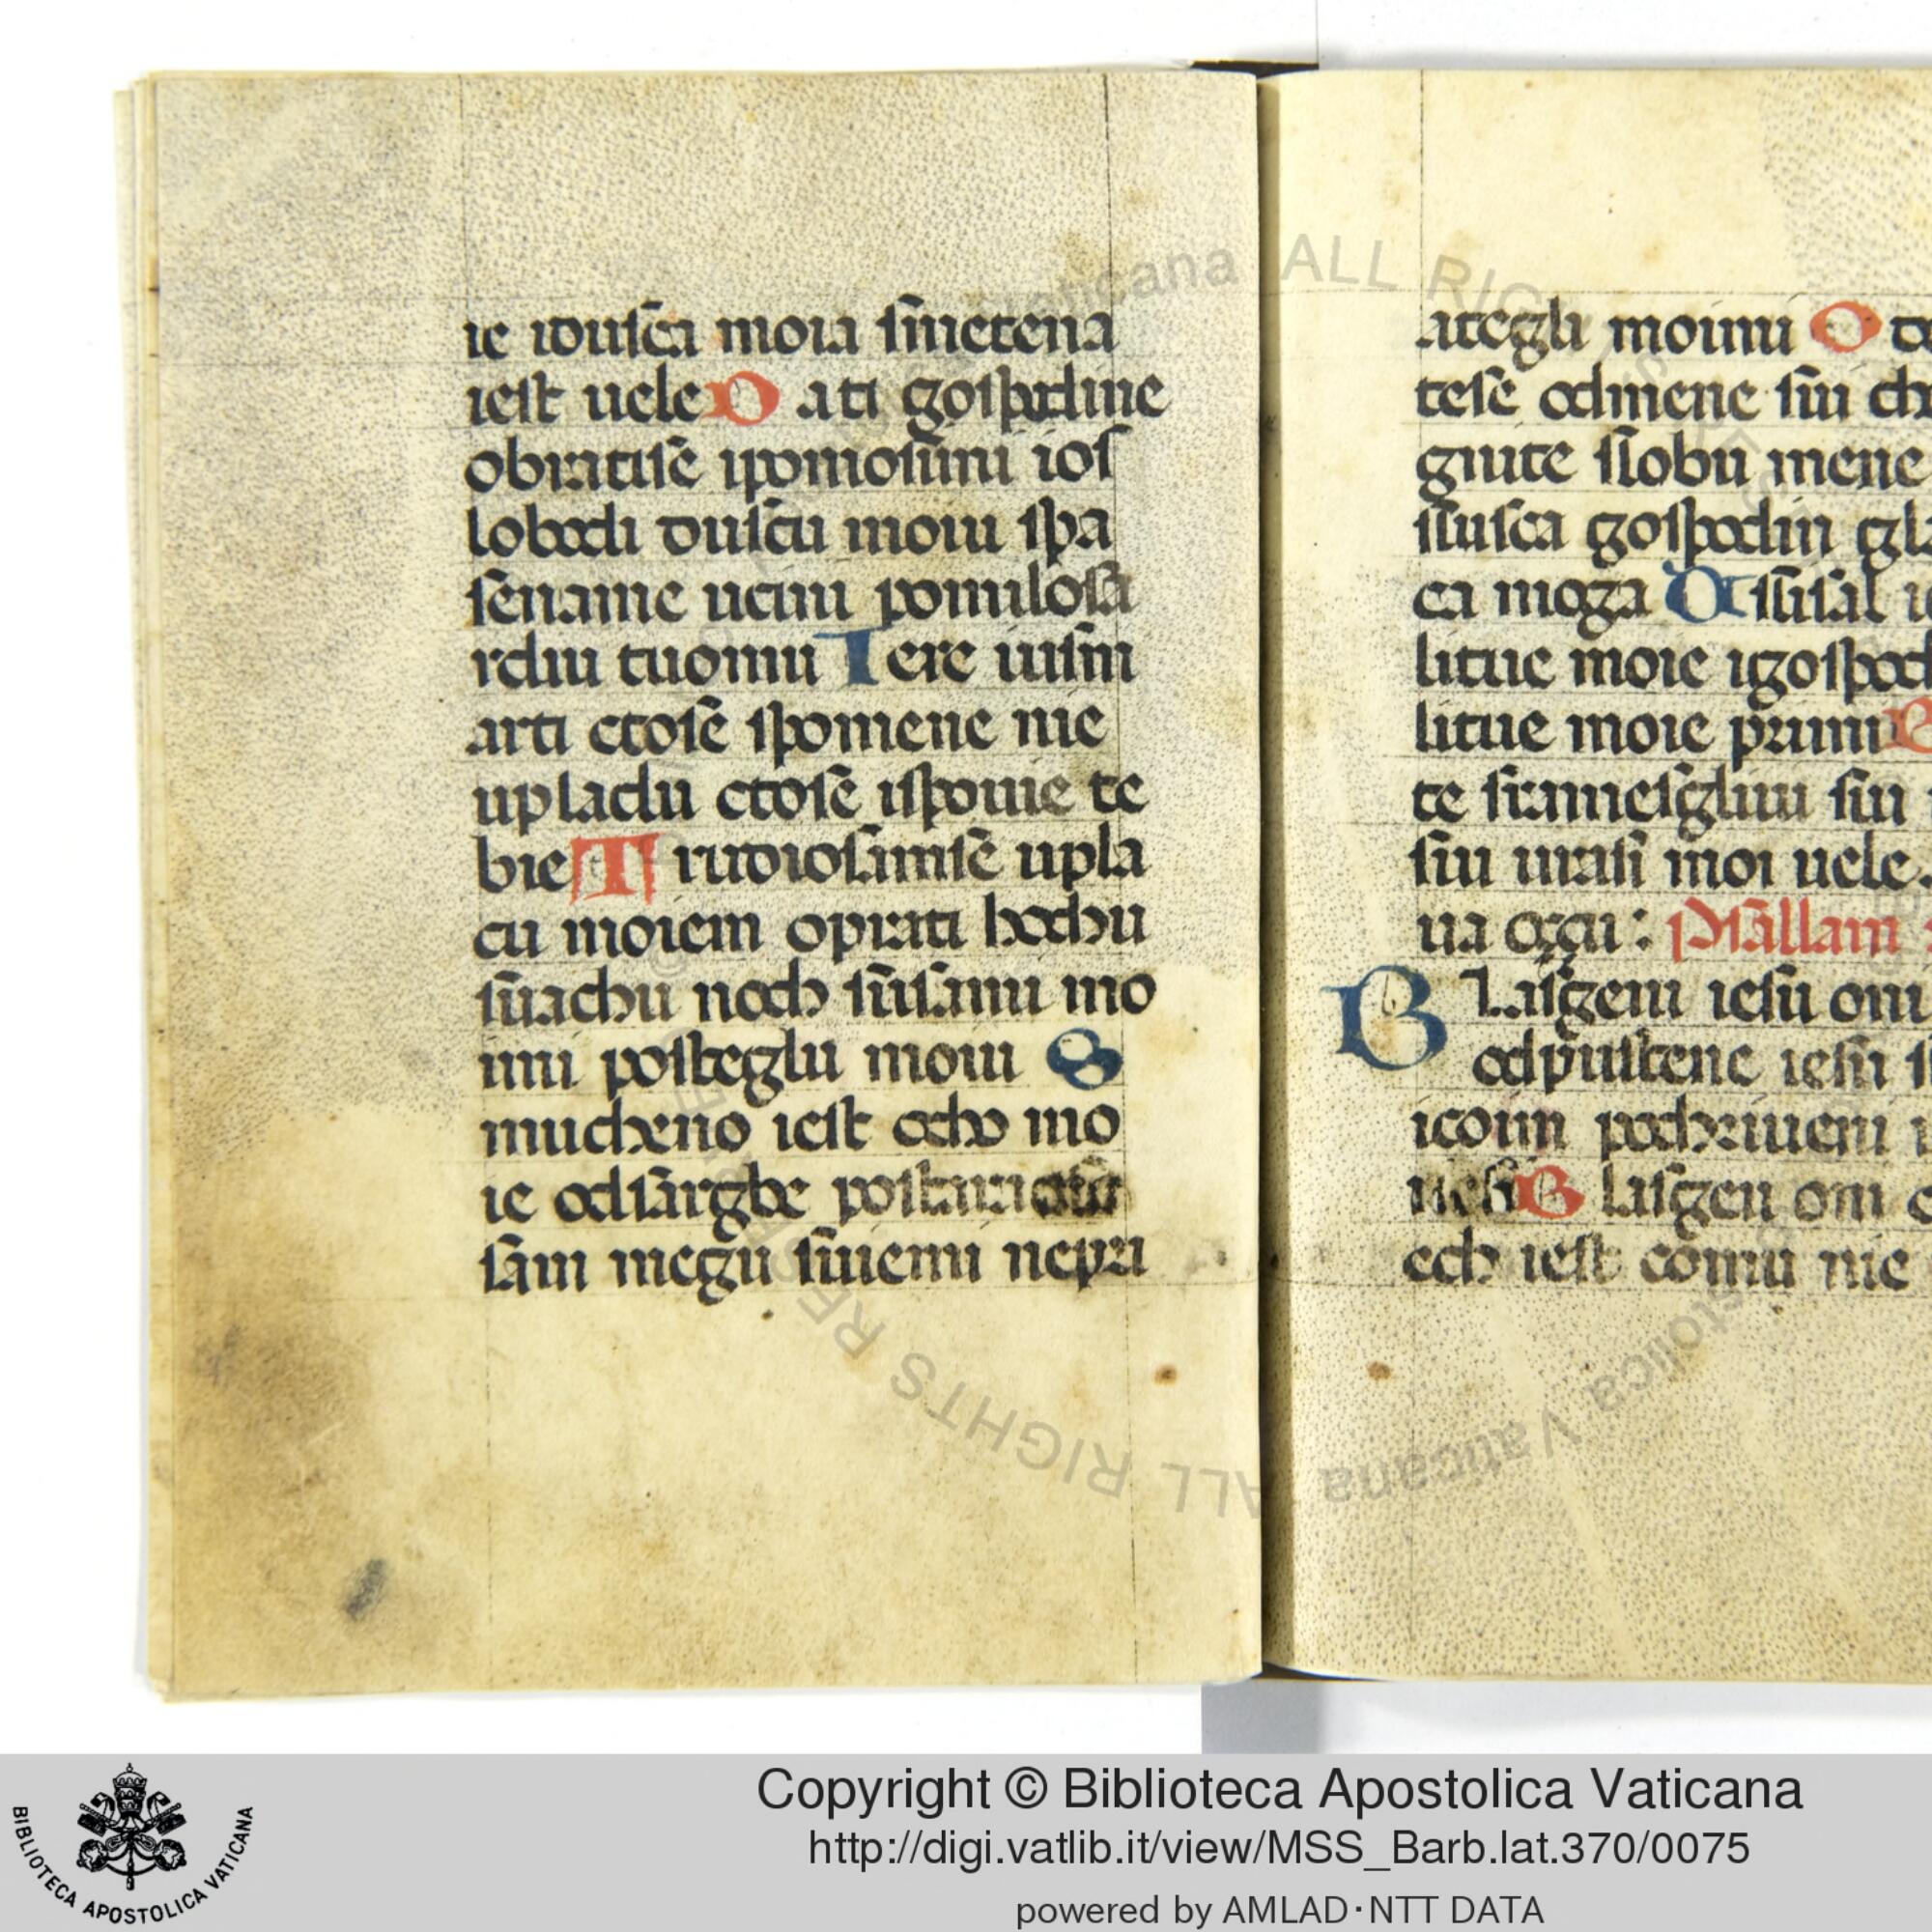 ie idusca moia smetena
iest uele O ati gospodine
obratise ipomosnni ios
lobodi duscu moiu spa
sename ucini pomilosa
rdiu tuomu Iere uismi
arti ctose spomene nie
upladu ctose ispouie te
bie T rudiosamse upla
cu moiem oprati hochu
suachu noch susami mo
imi posteglu moiu S
mucheno iest ocho mo
ie odsargbe
sam megu suiemi nepri
ategli moimi O
tese odmene sui
gniute slobu mene
slusca gospodin
ca moga V slisal
litue moie igospod
litue moie primi
te sramesgliuu sui
sui urasi moi uele
ua ogai : Psallam
B Lasgeni iesu oni
odpustene iesu
icoim pochriueni
nesu B lasgen oni
ech iest comu nie
Copyright © Biblioteca Apostolica Vaticana
http://digi.vatlib.it/view/MSS_Barb.lat.370/0075
powered by AMLAD·NTT DATA
BIBLIOTECA APOSTOLICA VATICANA